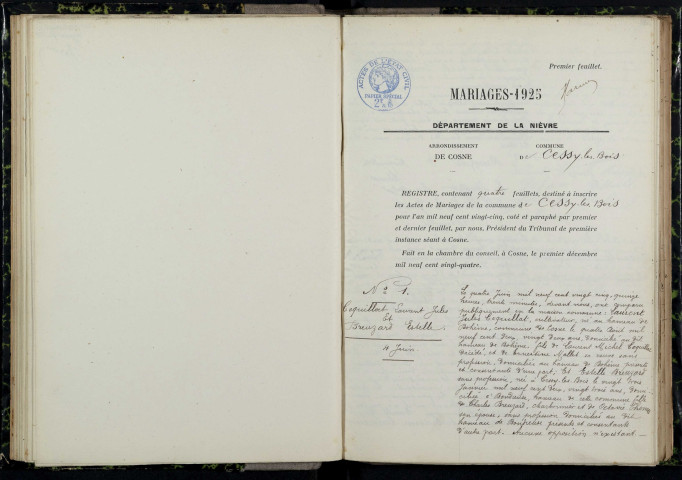 Premier feuillet.
ACTES DE L'ETAT CIVIL
PAPIER SPECIAL
MARIAGES-1925
DÉPARTEMENT DE LA NIÈVRE
ARRONDISSEMENT
DE COSNE
COMMUNE
de Cessy-les-Bois
REGISTRE, contenant quatre feuillets, destiné à inscrire
les Actes de Mariages de la commune de Cessy-les-Bois
pour l'an mil neuf cent vingt-cinq, coté et paraphé par premier
et dernier feuillet, par nous, Président du Tribunal de première
instance séant à Cosne.
Fait en la chambre du conseil, à Cosne, le premier décembre
mil neuf cent vingt-quatre.
N° 1.
Coquillat Laurent Jules
Et
Breuzard Estelle
4 Juin
Le quatre Juin mil neuf cent vingt cinq, quinze
heures, trente minutes, devant nous, ont comparu
publiquement en la maison commune: Laurent
Jules Coquillat, cultivateur, né au hameau de
commune de le quatre Août mil
neuf cent deux, vingt deux ans, domicilié au dit
hameau de fils de Laurent Michel Coquillat
décédé, et de Mallet sa veuve sans
profession, domiciliée au hameau de présente
et consentante d'une part; Et Estelle Breuzard
sans profession, née à Cessy-les-Bois le vingt trois
Janvier mil neuf cent deux, vingt trois ans, domi-
ciliée à hameau de cette commune fille
de Charles Breuzard, charbonnier et de Octavie
son épouse, sans profession domiciliés au dit
hameau de présents et consentants
d'autre part. Aucune opposition n'existant